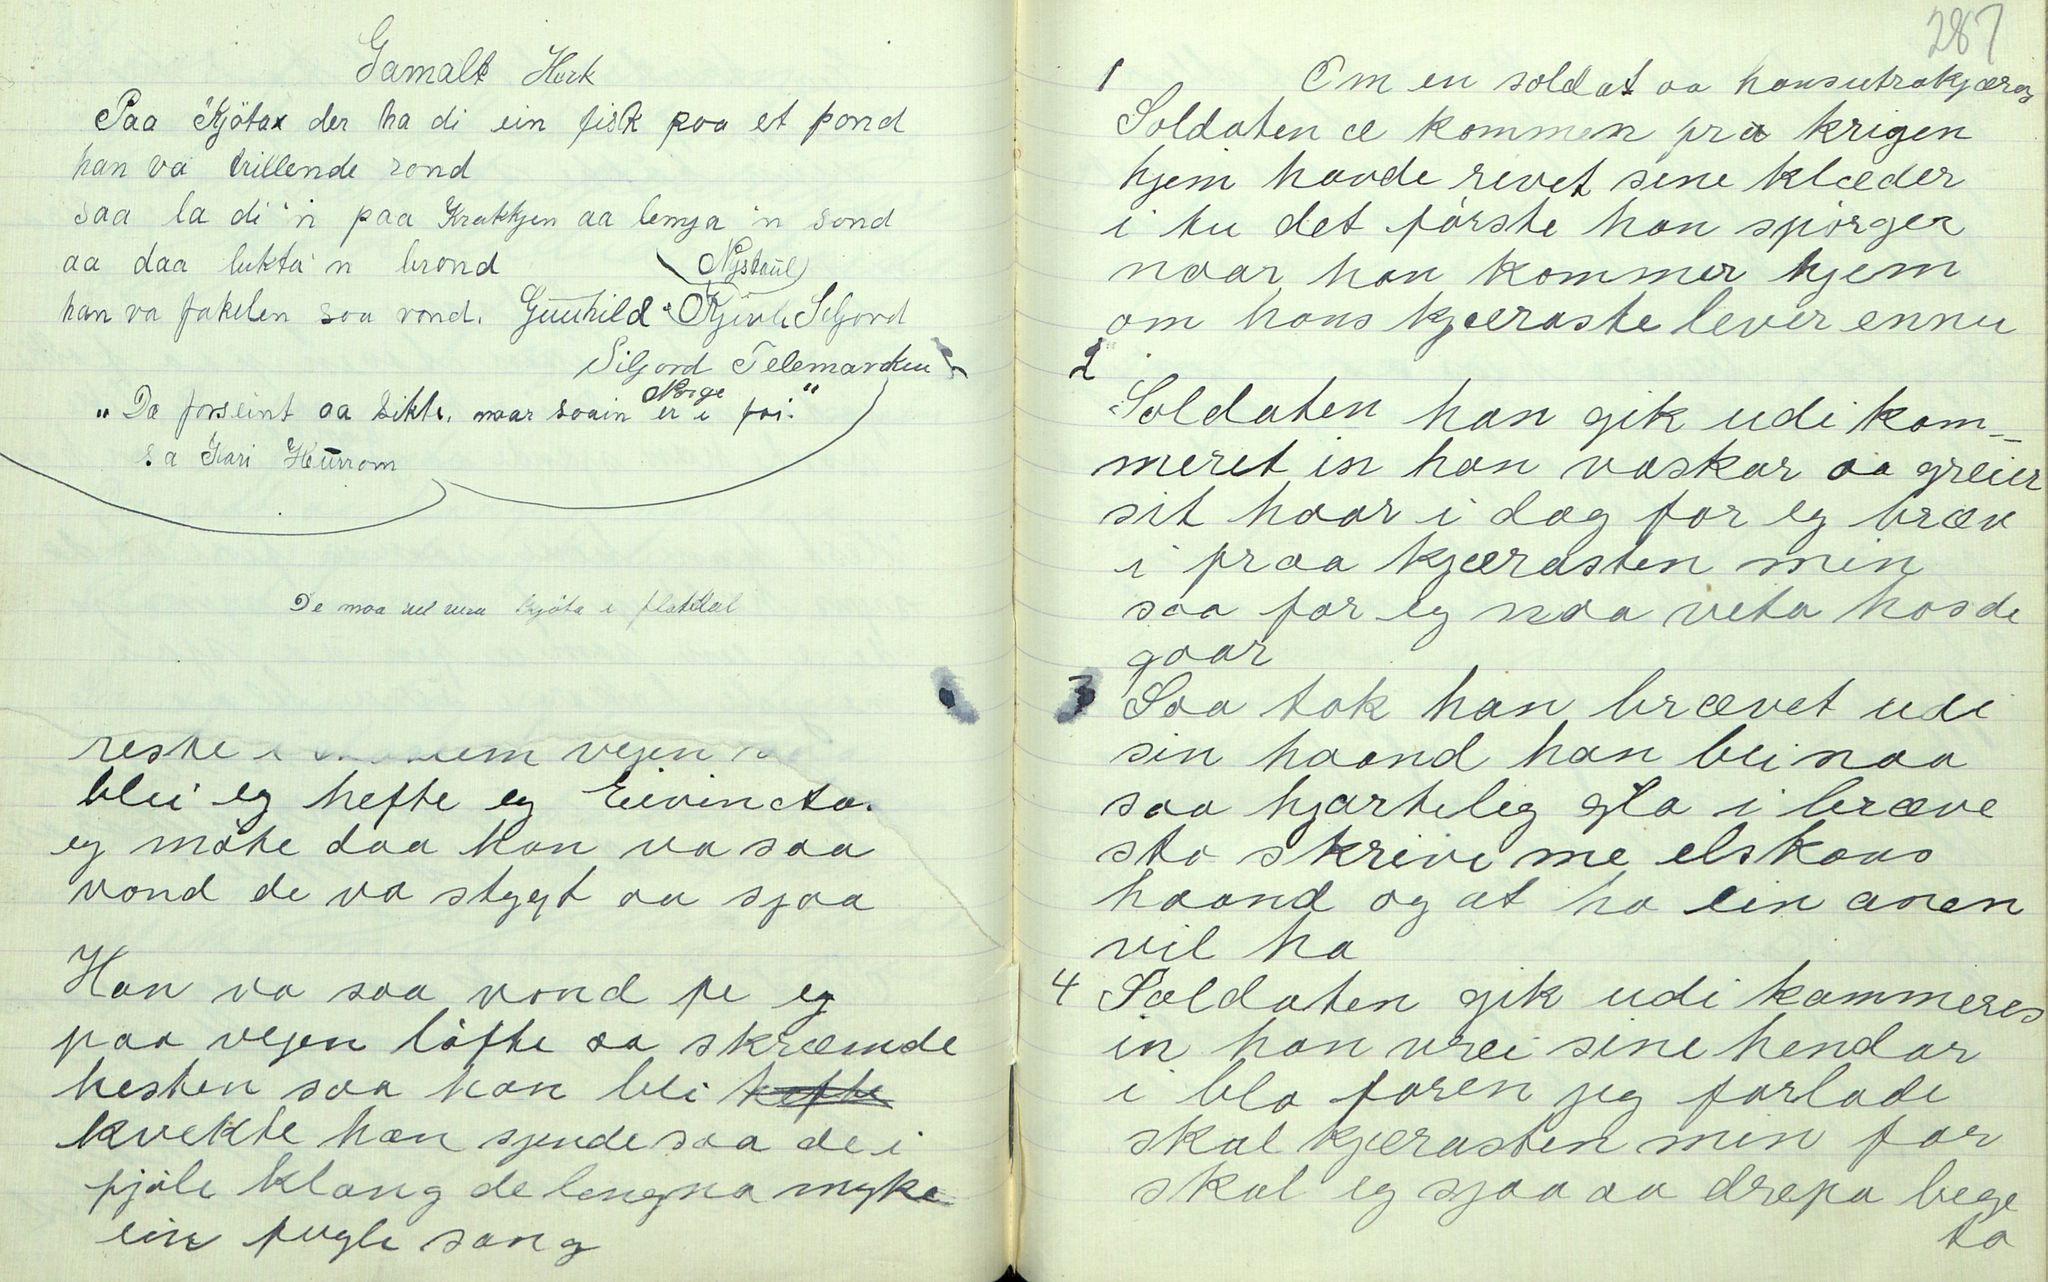 Gamalt Herk
Paa Kjöta der ha di ein fisk paa et pond
han va trillende rond
saa la di 'n paa Krakkjen aa lemja 'n sond
aa daa lukta 'n brond
(Nystaul)
han va fakelen saa vond. Gunhild Seljord
Siljord Telemarken
Norge
"De forseint aa sikte, naar soain er i foi."
sa Kari Hürrom
De maa vel vera kjöta i flatdal
reste vejen
blei eg hefte eg Eivincta.
eg möte daa han va saa
vond de va stygt aa sjaa
Han va saa vond fe eg
paa vejen löfte aa skræmde
hesten saa han blei hefte
kvekte han sjende saa de i
fjöle klang de lengna myke
ein fugle song
287
1 Om en soldat aa hans utrokjæres
Soldaten æ kommen fra krigen
hjem havde revet sine klæder
i tu det förste han spörger
naar han kommer hjem
om hans kjæraste lever ennu
2
Soldaten han gik udi kam-
meret in han vaskar aa greier
sit haar i dag for eg bræv
i fraa kjærasten min
saa for eg naa veta hosde
gaar
3 Saa tok han brævet udi
sin haand han blei naa
saa hjarteleg gla i bræve
sto skrive me elskans
haand og at ho ein anen
vil ha
4 Soldaten gik udi kammeres
in han vrei sine hendar
i blo faren jeg forlade
skal kjærasten min for
skal eg sjaa aa drepa bege
to